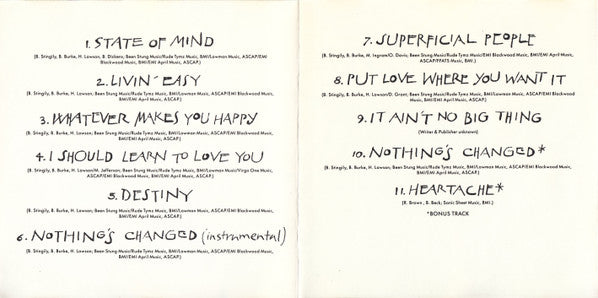 1. STATE OF MIND
(B. Stingily, B. Burke, H. Lowson, B. Dickens; Been Stung Music/Rude Tymz Music, BMI/Lowmon Music, ASCAP/EMI
Blackwood Music, BMI/EMI April Music, ASCAP.)
2. LIVIN' EASY
(B. Stingily, B. Burke, H. Lowson; Been Stung Music/Rude Tymz Music, BMI/Lowmon Music, ASCAP/EMI Blackwood Music,
BMI/EMI April Music, ASCAP.)
3. WHATEVER MAKES YOU HAPPY
(B. Stingily, B. Burke, H. Lowson; Been Stung Music/Rude Tymz Music, BMI/Lowmon Music, ASCAP/EMI Blackwood Music,
BMI/EMI April Music, ASCAP.)
4. I SHOULD LEARN TO LOVE YOU
(B. Stingily, B. Burke, H. Lowson/M. Jefferson; Been Stung Music/Rude Tymz Music, BMI/Lowmon Music/Virgo One Music,
ASCAP/EMI Blackwood Music, BMI/EMI April Music, ASCAP.)
5. DESTINY
(B. Stingily, B. Burke, H. Lowson; Been Stung Music/Rude Tymz Music, BMI/Lowmon Music, ASCAP/EMI Blackwood Music,
BMI/EMI April Music, ASCAP.)
6. NOTHING'S CHANGED (instrumental)
(B. Stingily, B. Burke, H. Lowson; Been Stung Music/Rude Tymz Music, BMI/Lowmon Music, ASCAP/EMI Blackwood Music,
BMI/EMI April Music, ASCAP.)
7. SUPERFICIAL PEOPLE
(B. Stingily, B. Burke, M. Ingram/O. Davis; Been Stung Music/Rude Tymz Music, BMI/EMI Blackwood Music,
ASCAP/PPATS Music, BMI.)
8. PUT LOVE WHERE YOU WANT IT
(B. Stingily, B. Burke, H. Lowson/D. Grant; Been Stung Music/Rude Tymz Music, BMI/Lowmon Music, ASCAP/EMI Blackwood
Music, BMI/EMI April Music, ASCAP.)
9. IT AIN'T NO BIG THING
(Writer & Publisher unknown)
10. NOTHING'S CHANGED*
(B. Stingily, B. Burke, H. Lowson; Been Stung Music/Rude Tymz Music, BMI/Lowmon Music, ASCAP/EMI Blackwood Music,
BMI/EMI April Music, ASCAP.)
11. HEARTACHE*
(R. Brown, B. Beck; Sonic Sheet Music, BMI.)
*BONUS TRACK